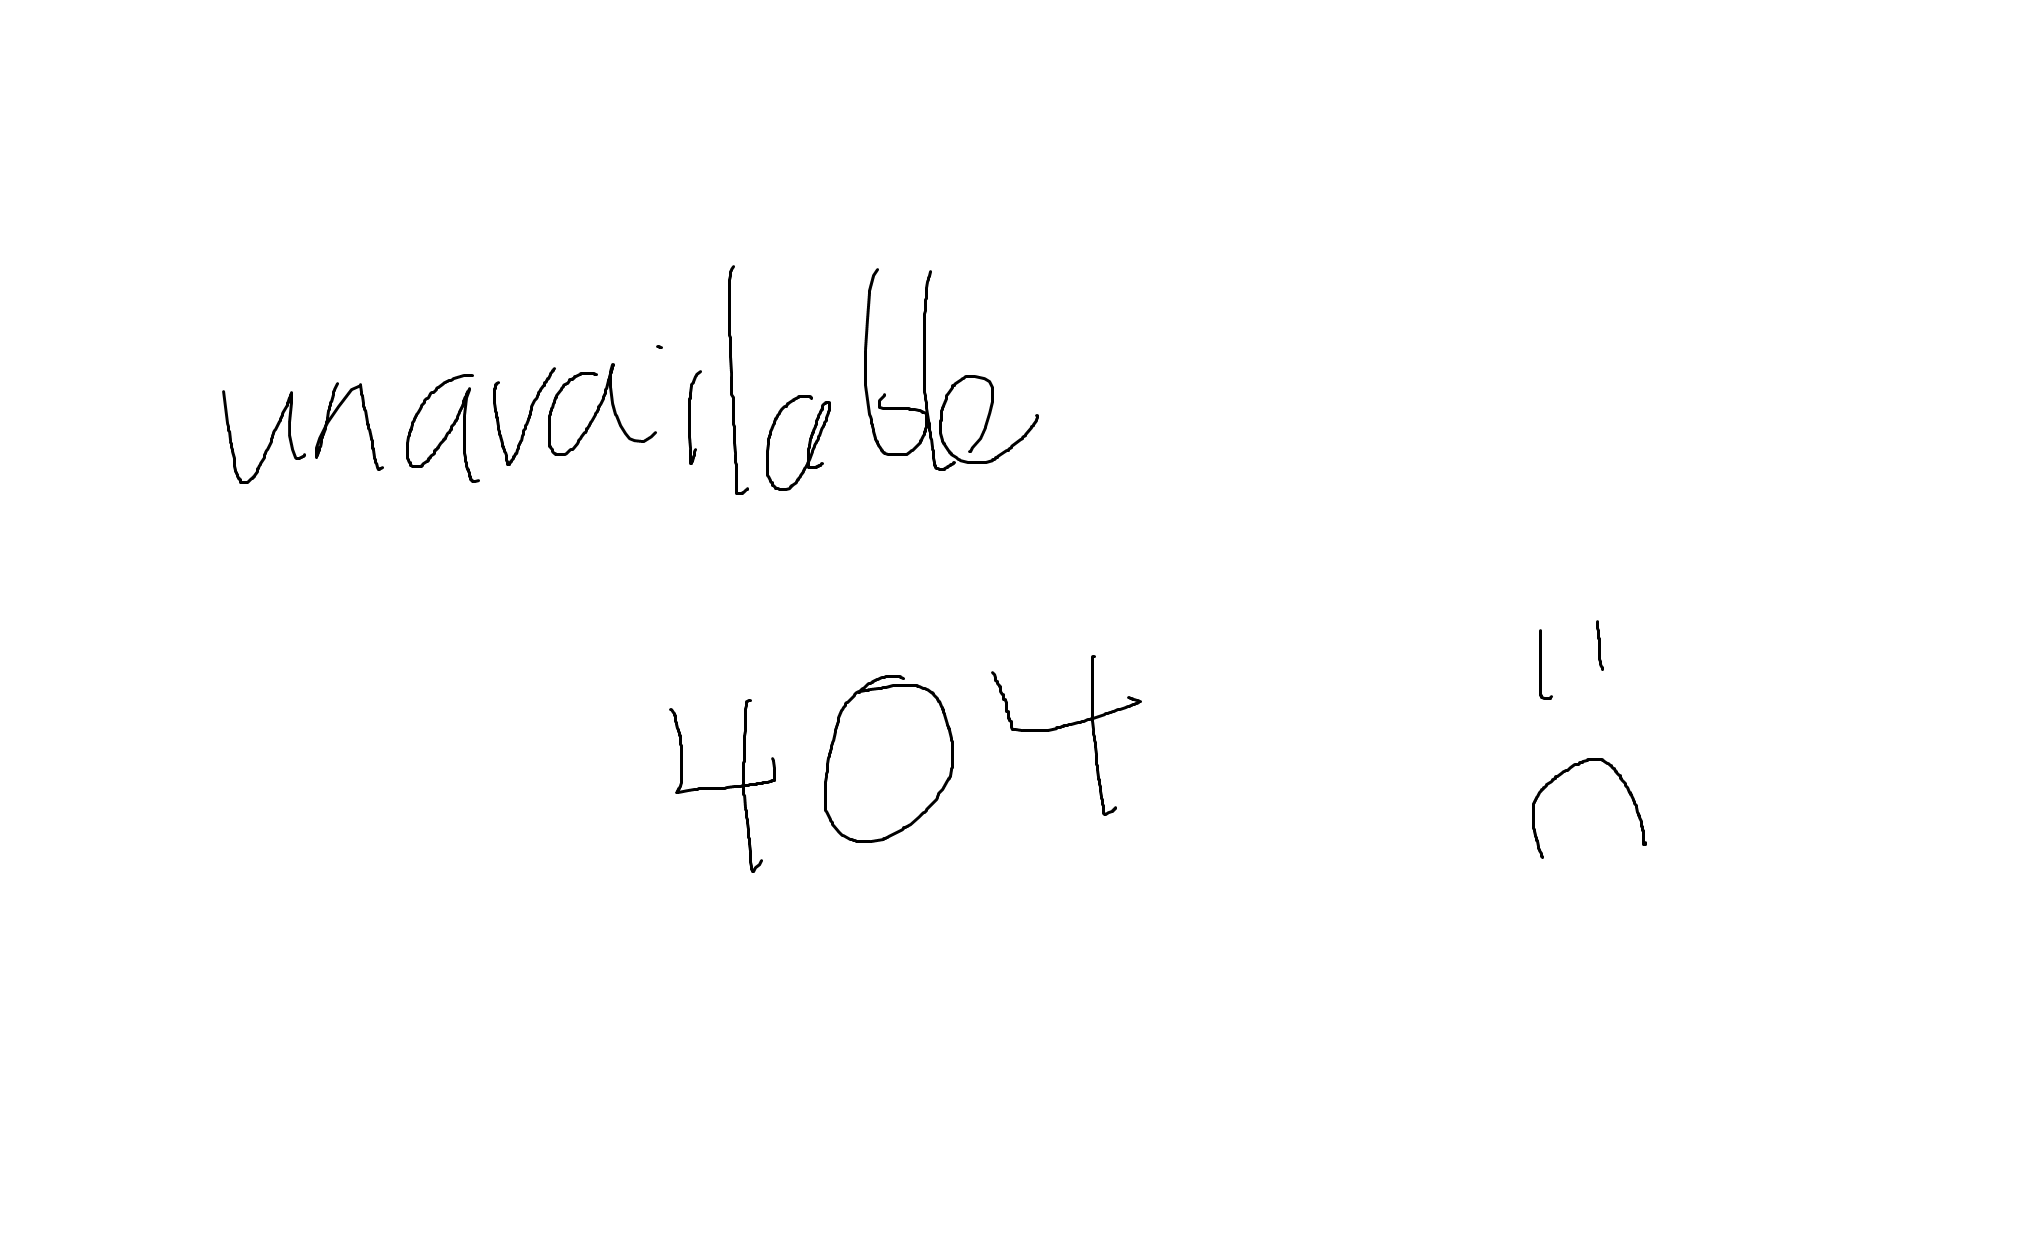 unavailable
404